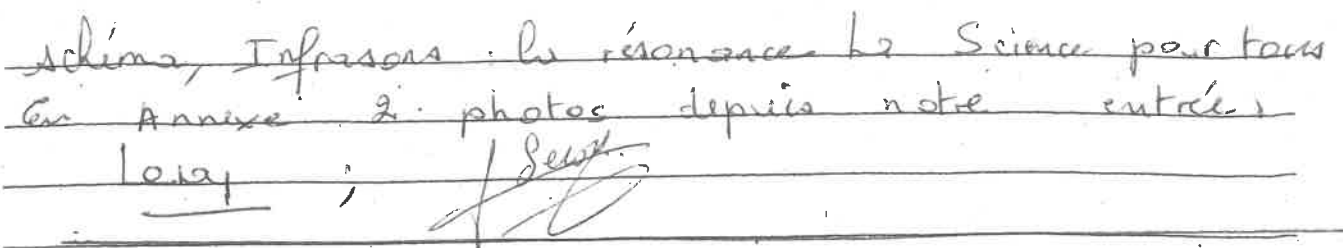 schéma, Infrasons : la résonance La Science pour tous
En Annexe 2 photos depuis notre entrée,